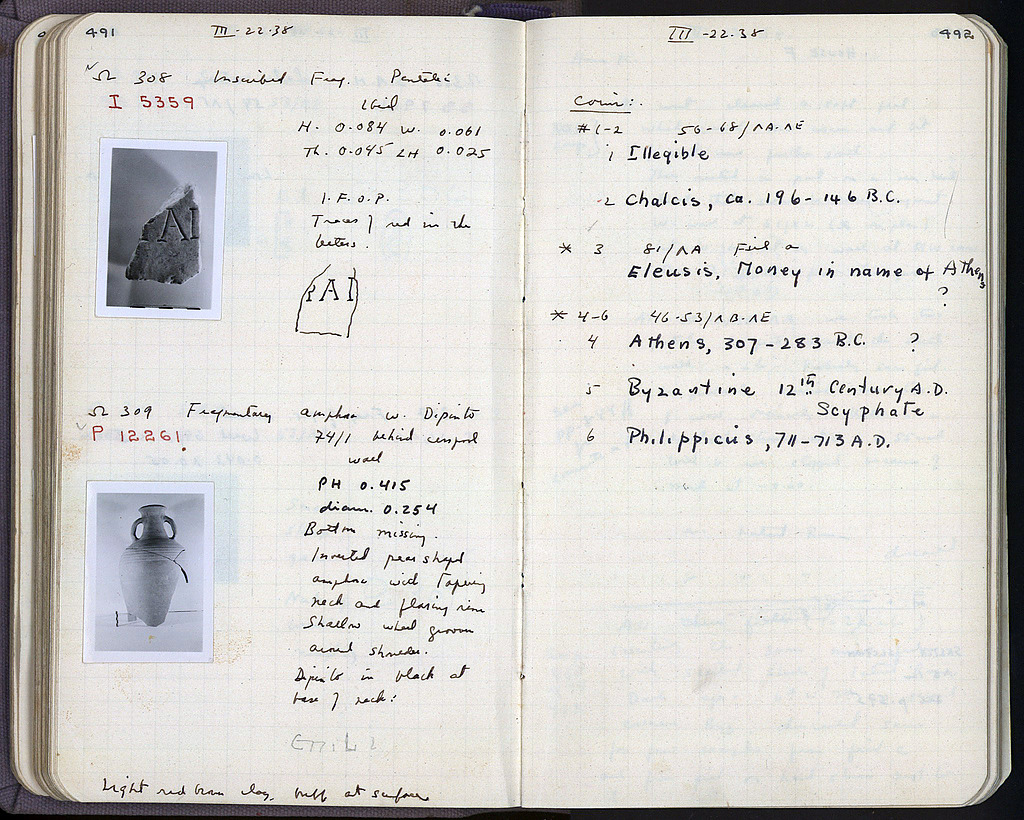 491
III-22-38
Ω 308 Inscribed Frag. Pentelic
I 5359
Ibid
H. 0.084 W. 0.061
Th. 0.045 LH 0.025
I.F.O.P.
Traces of red in the
letters.
AI
Ω 309 Fragmentary amphora w. Dipinto
P 12261
74/1 behind cesspool
wall
PH 0.415
diam. 0.254
Bottom missing.
Inverted pear shaped
amphora with tapering
neck and flaring rim
Shallow wheel grooves
around shoulder.
Dipinto in black at
base of neck:
Light red brown clay, buff at surface
III-22-38
492
Coins:
#1-2 56-68/ΛΑ-ΛΕ
1 Illegible
2 Chalcis, ca. 196-146 B.C.
* 3 81/ΛΑ Fill a
Eleusis, Money in name of Athens
?
* 4-6 46-53/ΛΒ-ΛΕ
4 Athens, 307-283 B.C. ?
5 Byzantine 12th Century A.D.
Scyphate
6 Philippicus, 711-713 A.D.